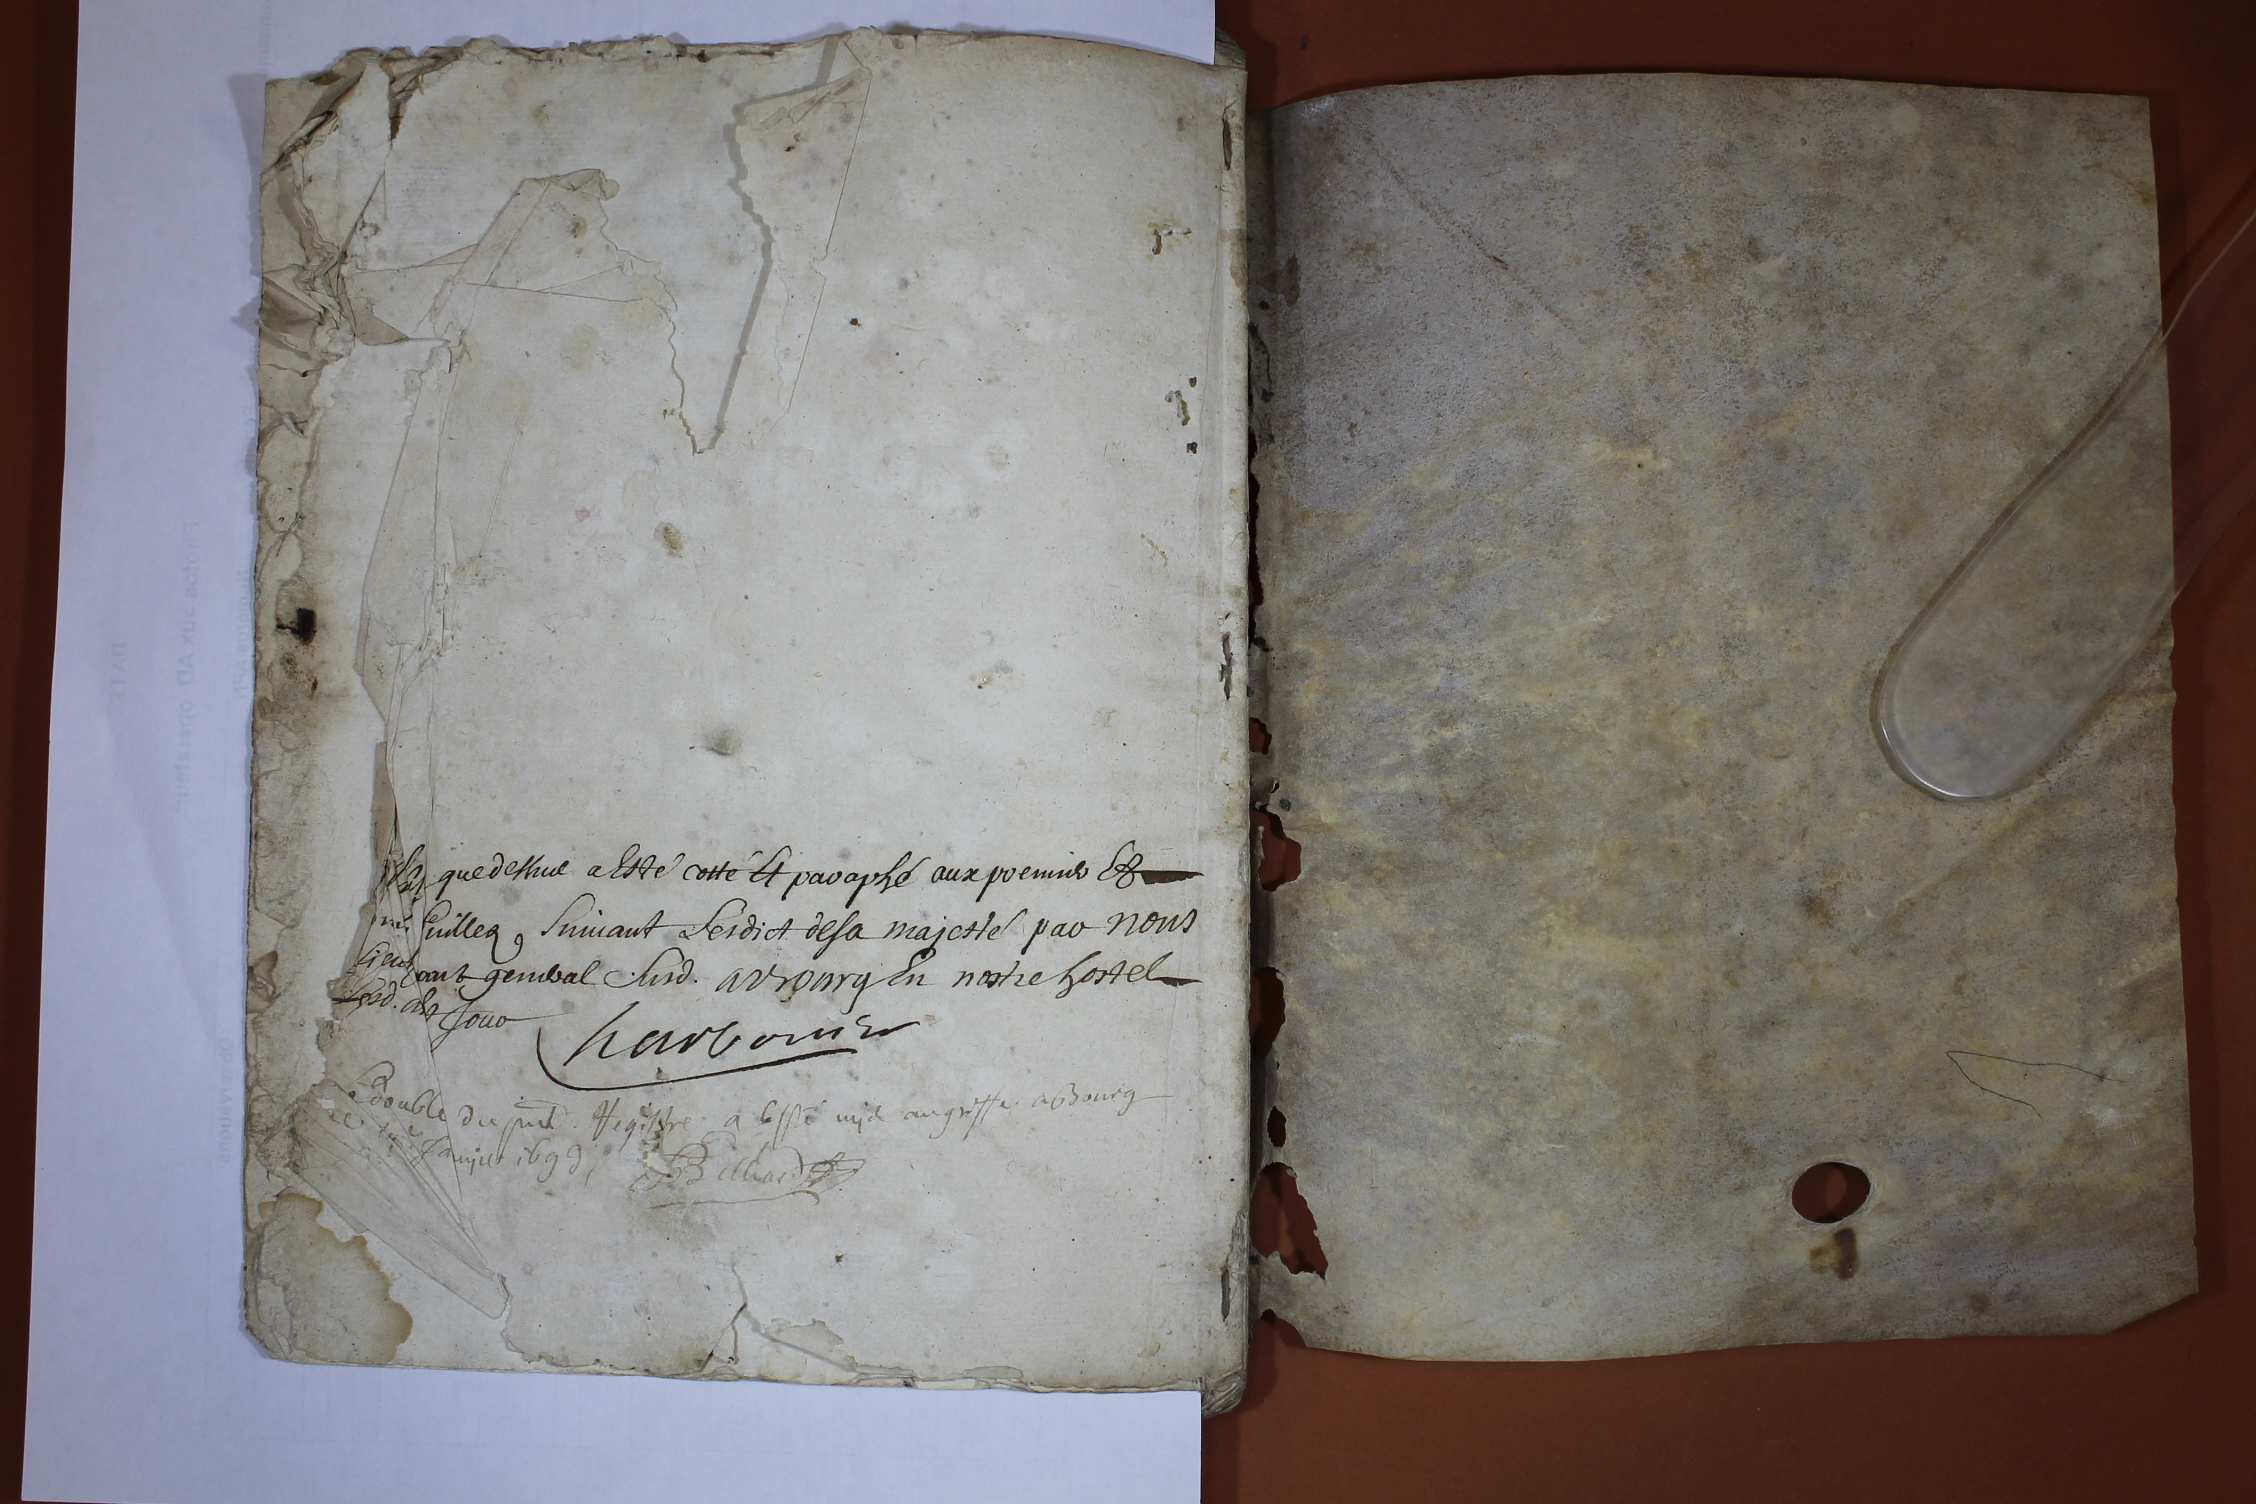 que dessus a Esté cotté Et paraphé aux premier Et
feuillez, suivant L'edict de sa majesté par nous
Lieutenant general susd. a Bourg En nostre hostel
Lesd. an Jour
Charbonier
Le double du put Registre a Esté mis au greffe a Bourg
Janvier 169
Billiard